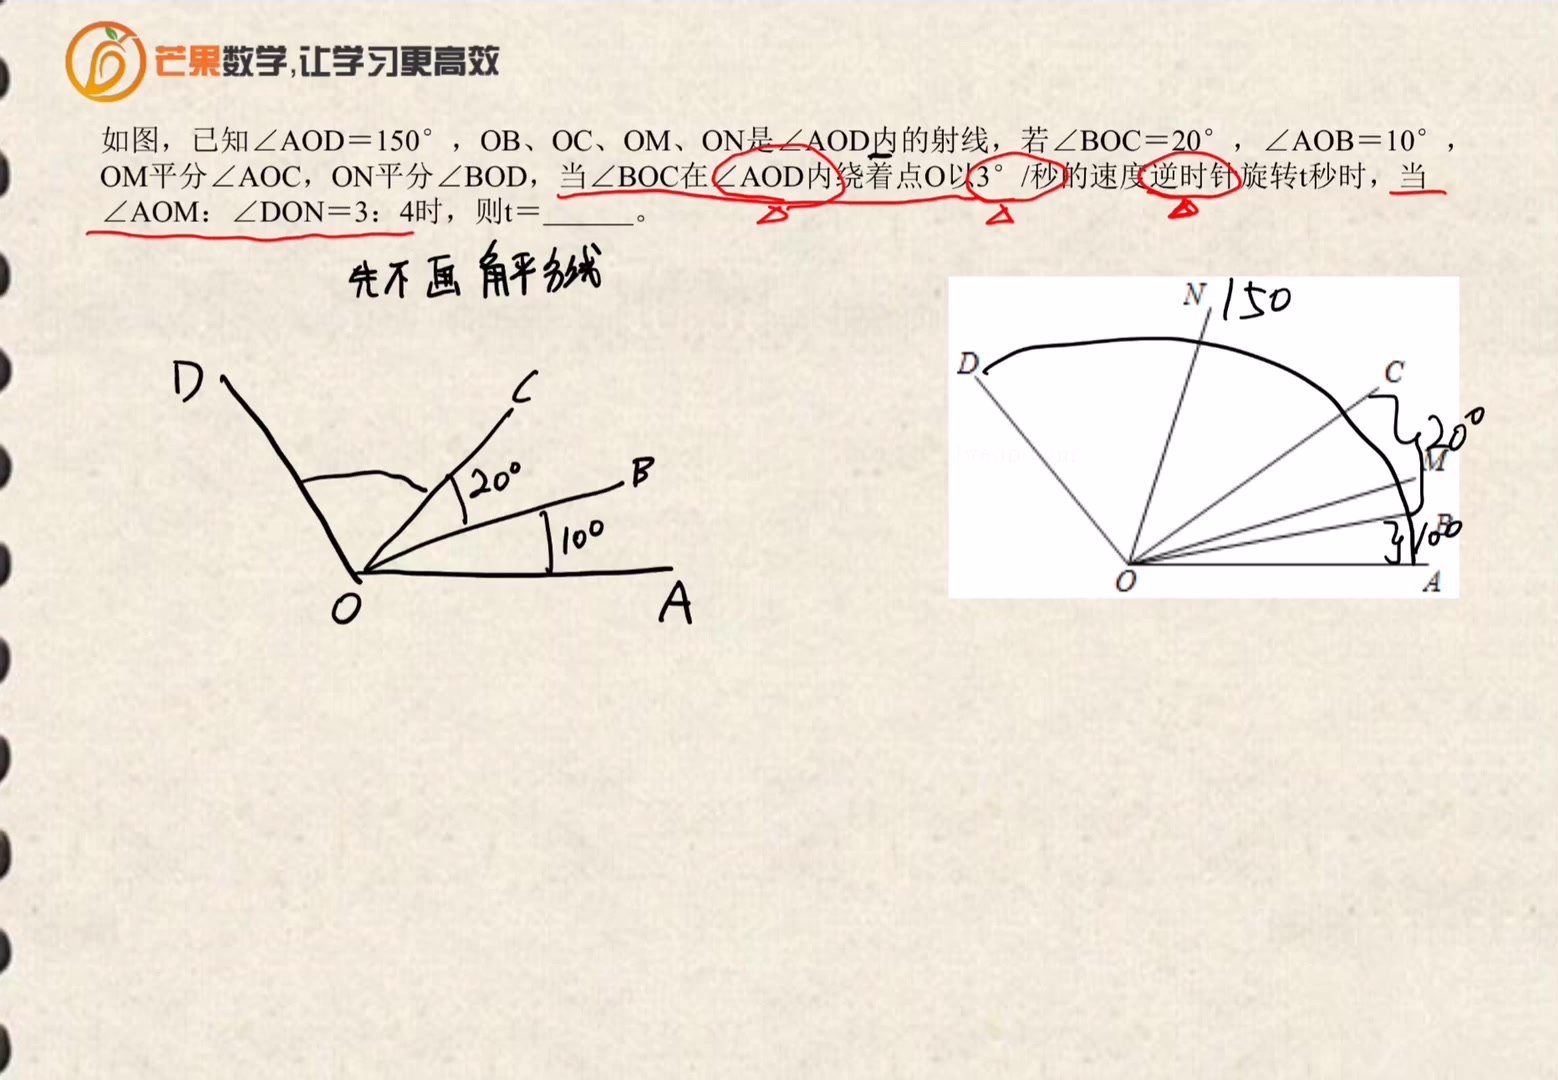 芒果数学,让学习更高效
如图，已知∠AOD＝150°，OB、OC、OM、ON是∠AOD内的射线，若∠BOC＝20°，∠AOB＝10°，
OM平分∠AOC，ON平分∠BOD，当∠BOC在∠AOD内绕着点O以3°/秒的速度逆时针旋转t秒时，当
∠AOM：∠DON＝3：4时，则t＝______。
先不画角平分线
N 150
D
C
20°
M
B
10°
O
A
D
C
20°
B
10°
O
A